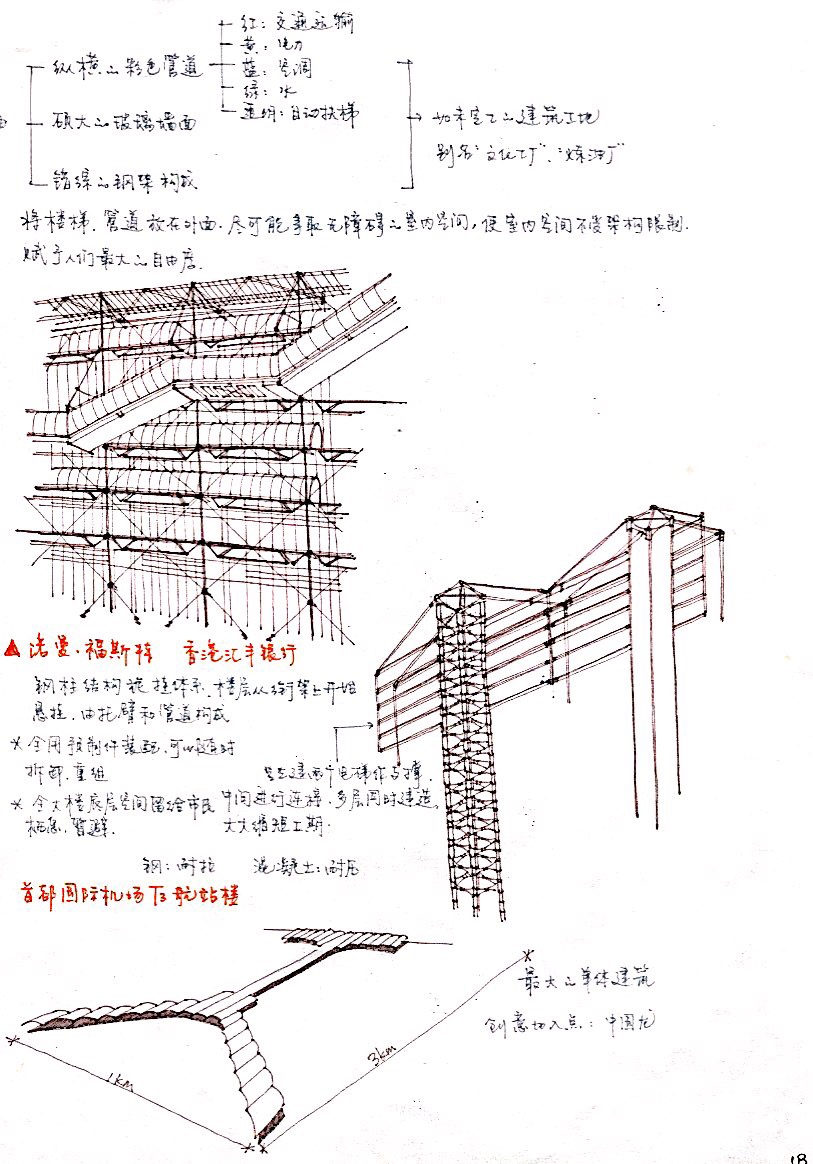 红：交通运输
黄：电力
纵横的彩色管道
蓝：空调
绿：水
透明：自动扶梯
硕大的玻璃墙面
如未完工的建筑工地
别名“文化工厂”、“炼油厂”
错综的钢架构成
将楼梯、管道放在外面，尽可能争取无障碍的室内空间，使室内空间不受架构限制.
赋予人们最大的自由度.
▲ 诺曼·福斯特 香港汇丰银行
钢柱结构悬挂体系，楼层从桁架上开始
悬挂，由托臂和管道构成
* 全用预制件装配，可以随时
拆卸、重组
* 令大楼底层空间留给市民
栖息、暂避.
是先建两个电梯作支撑，
中间进行连接，多层同时建造，
大大缩短工期.
钢：耐拉 混凝土：耐压
首都国际机场T3航站楼
最大的单体建筑
创意切入点：中国龙
1km
3km
18